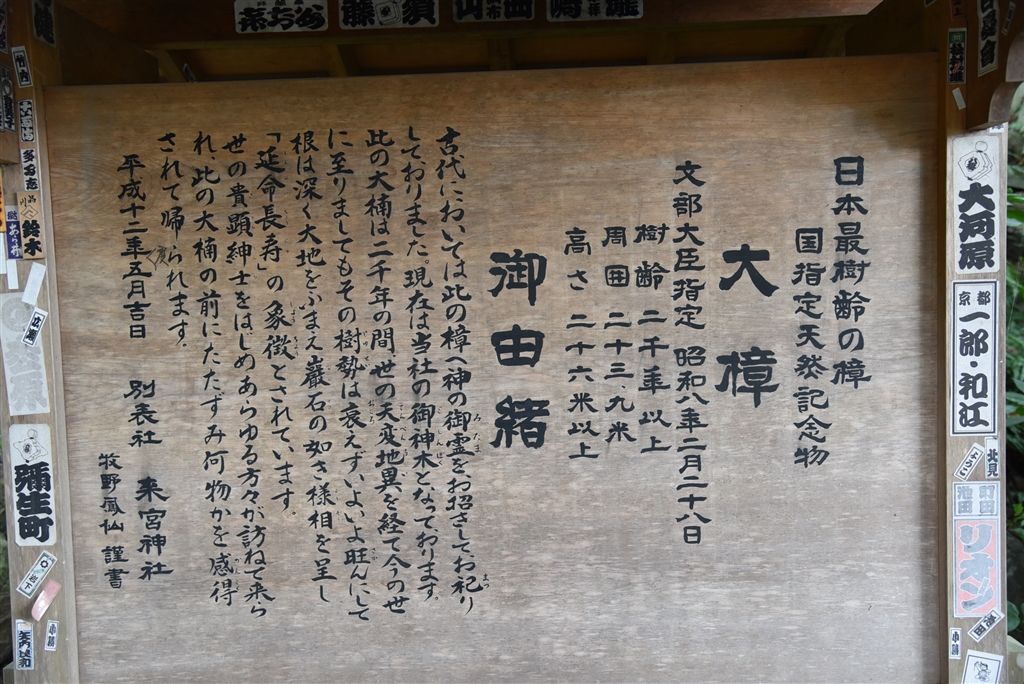 日本最樹齢の樟
国指定天然記念物
大樟
文部大臣指定 昭和八年二月二十八日
樹齢 二千年以上
周囲 二十三、九米
高さ 二十六米以上
御由緒
古代においては此の樟へ神の御霊をお招きしてお祀り
しておりました。現在は当社の御神木となっております。
此の大楠は二千年の間、世の天変地異を経て今の世
に至りましてもその樹勢は衰えずいよいよ旺んにして
根は深く大地をふまえ巌石の如き様相を呈し
「延命長寿」の象徴とされています。
世の貴顕紳士をはじめあらゆる方々が訪ねて来ら
れ、此の大楠の前にたたずみ何物かを感得
されて帰られます。
平成十二年五月吉日 別表社 来宮神社
牧野鳳仙 謹書
大河原
京都
一郎・和江
北見
町田
池田
リオン
鈴木
彌生町